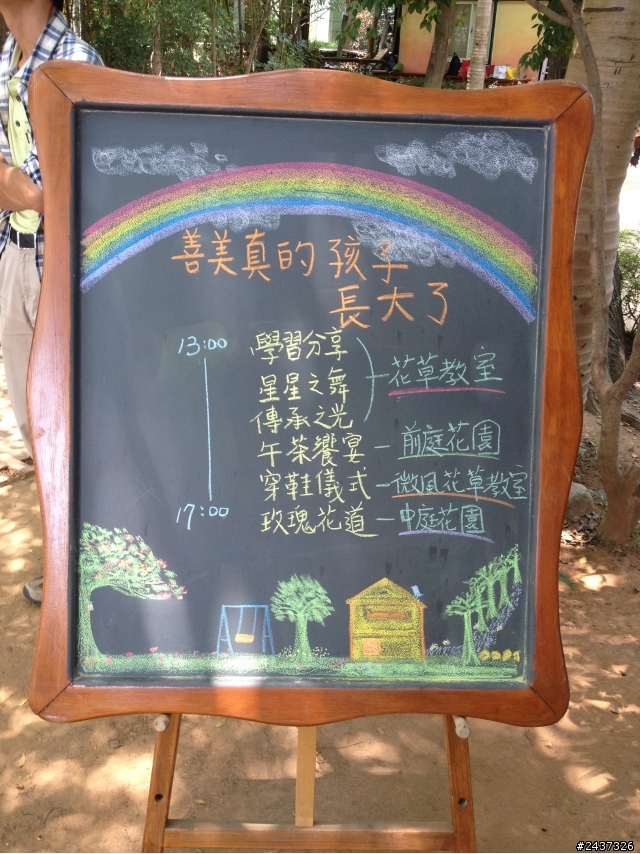 善美真的孩子
長大了
13:00
學習分享
星星之舞
傳承之光
花草教室
午茶饗宴 — 前庭花園
穿鞋儀式 — 微風花草教室
17:00
玫瑰花道 — 中庭花園
#2437326